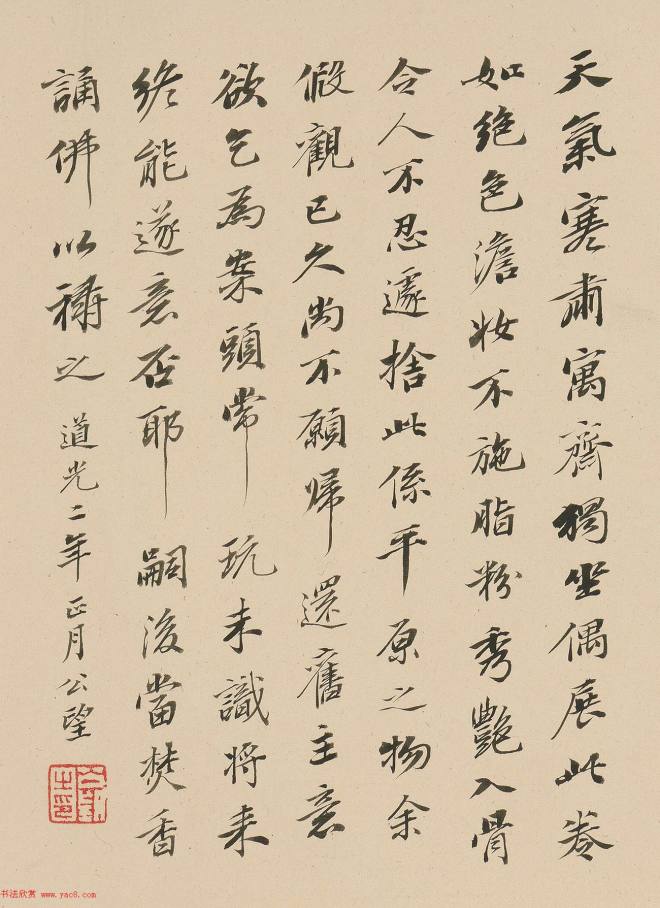 天氣寒肅寓齋獨坐偶展此卷
如絕色澹妝不施脂粉秀艷入骨
令人不忍遽捨此係平原之物余
假觀已久尚不願歸還舊主意
欲乞為案頭常玩未識將来
終能遂意否耶嗣後當焚香
誦佛以禱之道光二年正月公望
书法欣赏 www.yac8.com